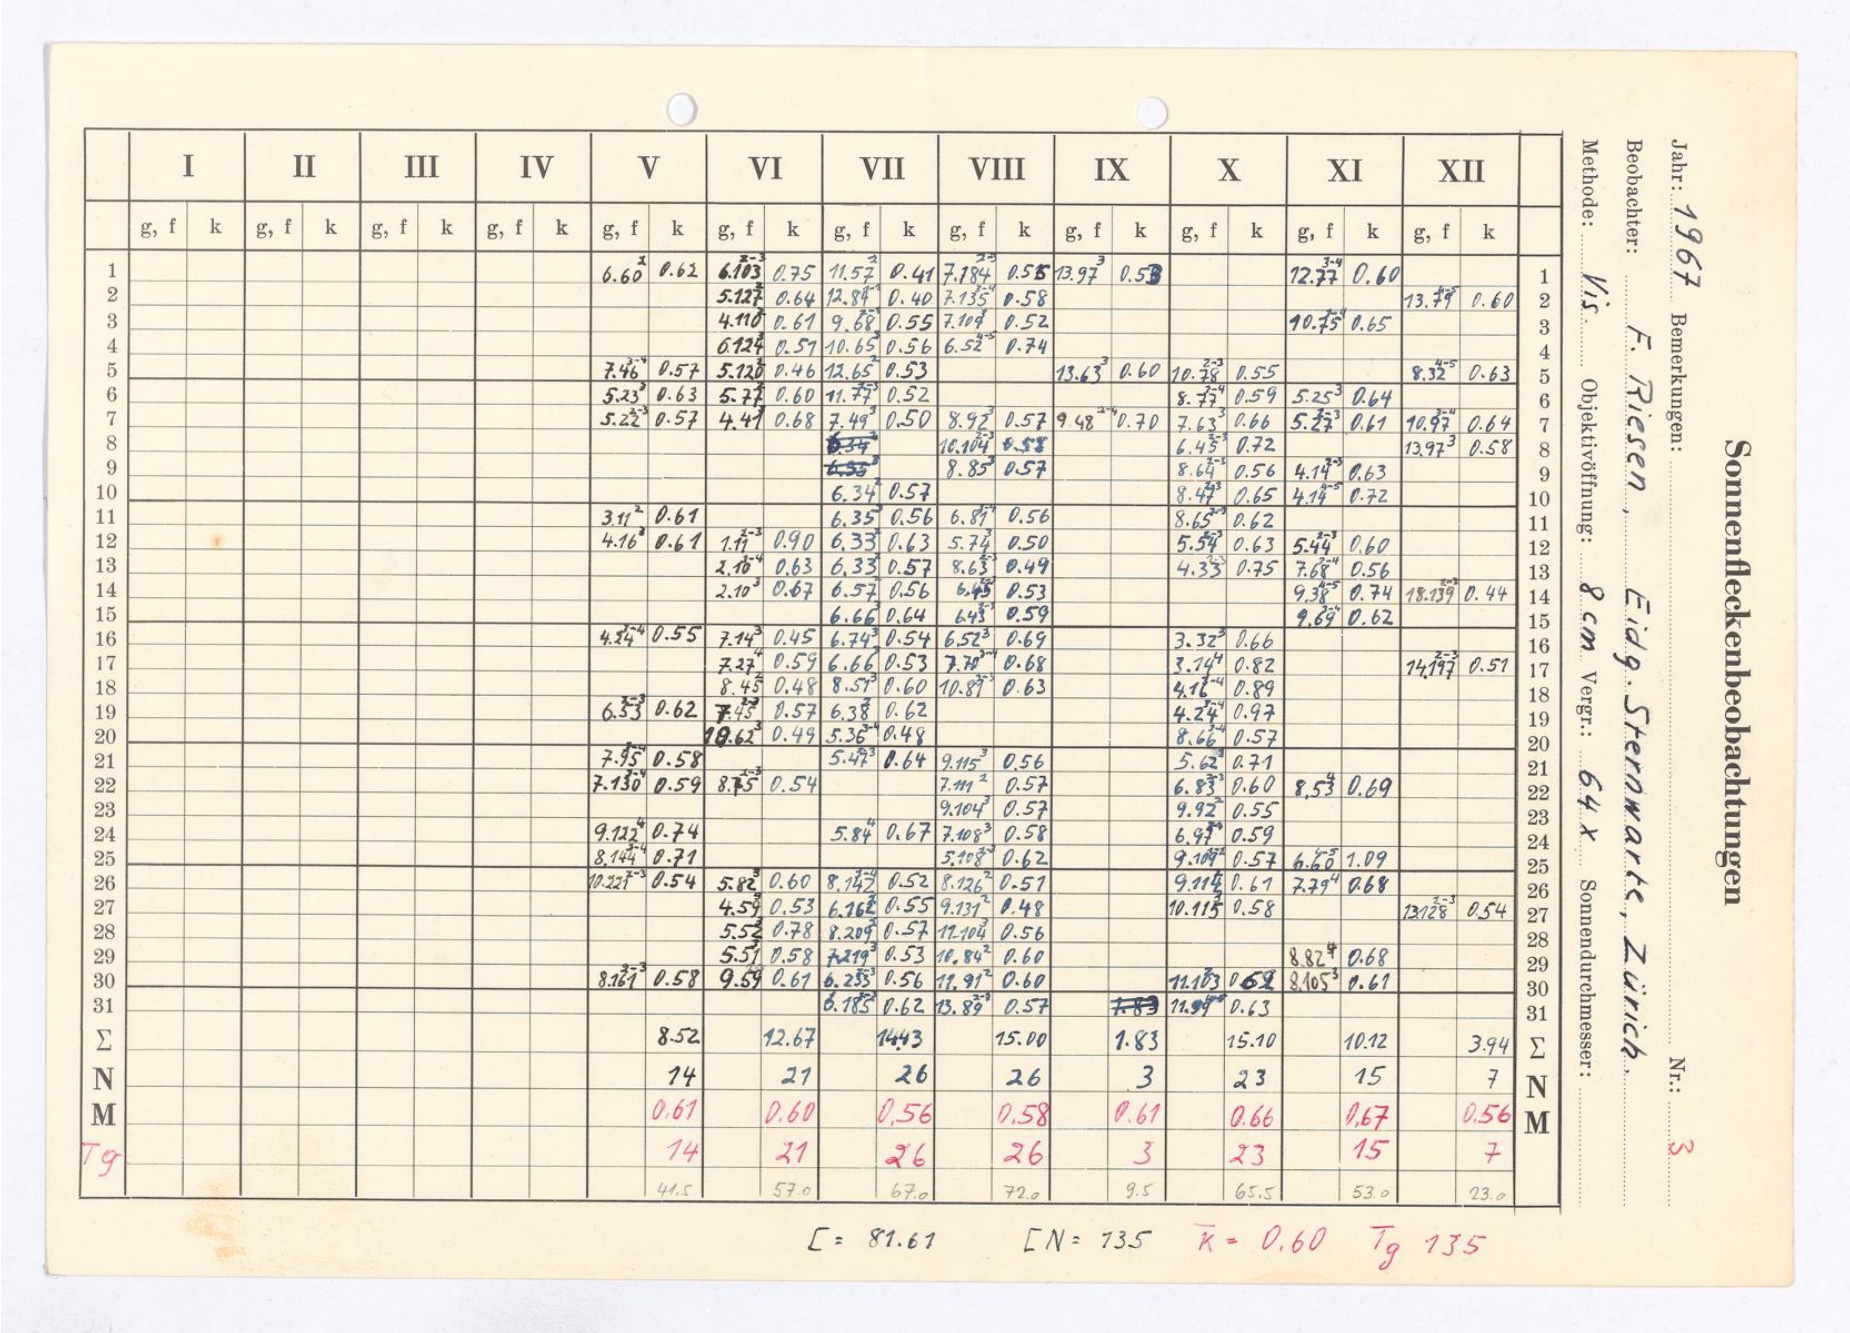 Sonnenfleckenbeobachtungen
Jahr: 1967 Bemerkungen: Nr.: 3
Beobachter: F. Riesen, Eidg. Sternwarte, Zürich.
Methode: Vis. Objektivöffnung: 8 cm Vergr.: 64 x Sonnendurchmesser:
I II III IV V VI VII VIII IX X XI XII
g, f k g, f k g, f k g, f k g, f k g, f k g, f k g, f k g, f k g, f k g, f k g, f k
1 6.60² 0.62 6.103²⁻³ 0.75 11.57² 0.41 7.184²⁻³ 0.55 13.97³ 0.53 12.77³⁻⁴ 0.60 1
2 5.127 0.64 12.84 0.40 7.135³⁻⁴ 0.58 13.79⁴⁻⁵ 0.60 2
3 4.110 0.61 9.68 0.55 7.109 0.52 10.75 0.65 3
4 6.124 0.51 10.65 0.56 6.52⁴⁻⁵ 0.74 4
5 7.46³⁻⁴ 0.57 5.120 0.46 12.65² 0.53 13.63³ 0.60 10.78²⁻³ 0.55 8.32⁴⁻⁵ 0.63 5
6 5.23³ 0.63 5.77 0.60 11.77²⁻³ 0.52 8.77 0.59 5.25³ 0.64 6
7 5.22²⁻³ 0.57 4.41 0.68 7.49³ 0.50 8.92 0.57 9.48 0.70 7.63³ 0.66 5.27 0.61 10.97³⁻⁴ 0.64 7
8 10.104 0.58 6.45 0.72 13.97³ 0.58 8
9 8.85³ 0.57 8.64 0.56 4.14 0.63 9
10 6.34² 0.57 8.47 0.65 4.14⁴⁻⁵ 0.72 10
11 3.11² 0.61 6.35 0.56 6.81 0.56 8.65 0.62 11
12 4.16³ 0.61 1.11²⁻³ 0.90 6.33 0.63 5.74 0.50 5.54 0.63 5.44 0.60 12
13 2.10 0.63 6.33 0.57 8.63 0.49 4.33 0.75 7.68 0.56 13
14 2.10³ 0.67 6.57 0.56 6.45 0.53 9.38⁴⁻⁵ 0.74 18.139²⁻³ 0.44 14
15 6.66 0.64 6.43 0.59 9.69 0.62 15
16 4.24 0.55 7.14³ 0.45 6.74³ 0.54 6.52³ 0.69 3.32³ 0.66 16
17 7.27⁴ 0.59 6.66 0.53 7.70 0.68 3.14⁴ 0.82 14.197²⁻³ 0.51 17
18 8.45 0.48 8.51³ 0.60 10.87 0.63 4.16 0.89 18
19 6.53²⁻³ 0.62 7.45 0.57 6.38 0.62 4.24 0.97 19
20 10.62³ 0.49 5.36 0.48 8.66 0.57 20
21 7.95 0.58 5.47³ 0.64 9.115³ 0.56 5.62 0.71 21
22 7.130 0.59 8.75 0.54 7.111² 0.57 6.83 0.60 8.53⁴ 0.69 22
23 9.104³ 0.57 9.92 0.55 23
24 9.122⁴ 0.74 5.84⁴ 0.67 7.108³ 0.58 6.97 0.59 24
25 8.144 0.71 5.108 0.62 9.109 0.57 6.60⁴⁻⁵ 1.09 25
26 10.221²⁻³ 0.54 5.82³ 0.60 8.142 0.52 8.126² 0.51 9.114 0.61 7.79⁴ 0.68 26
27 4.59 0.53 6.162 0.55 9.131² 0.48 10.115 0.58 13.128²⁻³ 0.54 27
28 5.52 0.78 8.209 0.57 11.104 0.56 28
29 5.51 0.58 7.219³ 0.53 10.84² 0.60 8.82⁴ 0.68 29
30 8.161²⁻³ 0.58 9.59 0.61 6.233 0.56 11.91² 0.60 11.103 0.62 8.105³ 0.61 30
31 6.185 0.62 13.89 0.57 1.83 11.99 0.63 31
Σ 8.52 12.67 14.43 15.00 1.83 15.10 10.12 3.94 Σ
N 14 21 26 26 3 23 15 7 N
M 0.61 0.60 0.56 0.58 0.61 0.66 0.67 0.56 M
Tg 14 21 26 26 3 23 15 7
41.5 57.0 67.0 72.0 9.5 65.5 53.0 23.0
Σ = 81.61 Σ N = 135 k̄ = 0.60 Tg 135